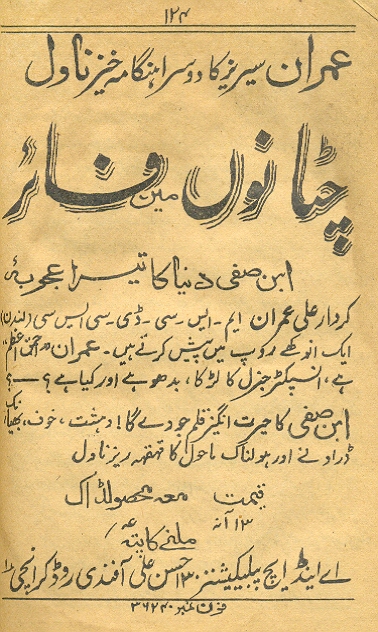 ۱۲۴
عمران سیریز کا دوسرا ہنگامہ خیز ناول
چٹانوں میں فائر
ابن صفی دنیا کا تیسرا عجوبہ
کردار علی عمران ایم۔ ایس۔ سی۔ ڈی۔ سی ایس سی (لندن)
ایک انوکھے روپ میں پیش کرتے ہیں۔ عمران "احمق اعظم"
ہے، انسپکٹر جنرل کا لڑکا، بدھو ہے اور کیا ہے؟ —؟
ابن صفی کا حیرت انگیز قلم جو دے گا! دہشت، خوف، بھیانک
ڈراونے اور ہولناک ماحول کا قہقہہ ریز ناول
قیمت معہ محصولڈاک
۱۳ آنہ
ملنے کا پتہ
اے اینڈ ایچ پبلیکیشنز ۱۳۰ حسن علی آفندی روڈ کراچی ۱
فون نمبر ۳۶۲۴۰